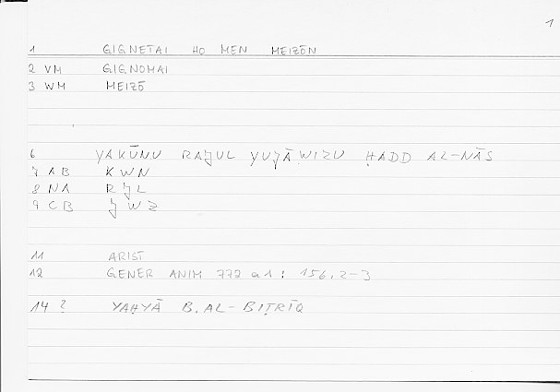 1
1 GIGNETAI HO MEN MEIZŌN
2 VM GIGNOMAI
3 WM MEIZŌ
6 YAKŪNU RAJUL YUJĀWIZU ḤADD AL-NĀS
7 AB KWN
8 NA RJL
9 CB JWZ
11 ARIST
12 GENER ANIM 772 a1 : 156.2-3
14 ? YAḤYĀ B. AL-BIṬRĪQ